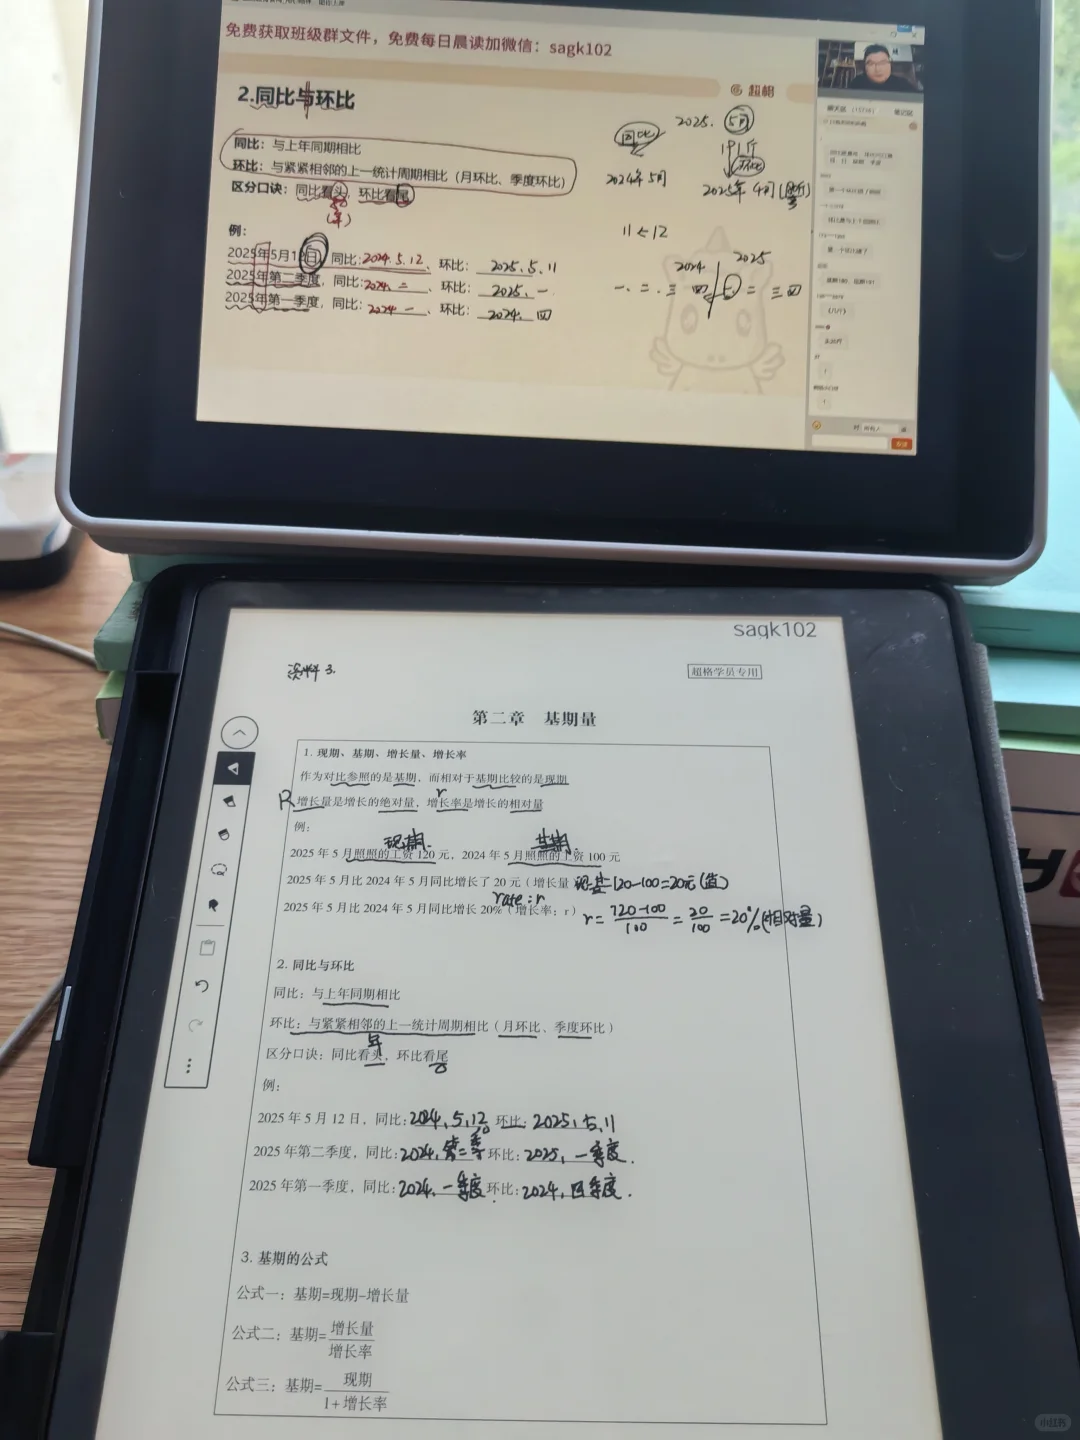 免费获取班级群文件，免费每日晨读加微信：sagk102
2.同比与环比
超格
同比：与上年同期相比
环比：与紧紧相邻的上一统计周期相比（月环比、季度环比）
区分口诀：同比看头，环比看尾
(年)
例：
2025年5月12日，同比：2024.5.12、环比：2025.5.11
2025年第二季度，同比：2024.二、环比：2025.一
2025年第一季度，同比：2024.一、环比：2024.四
同比
2025.5月
2024年5月
环比
2025年4月
11<12
2024 2025
一.二.三 四 一 二 三 四
sagk102
资料3.
超格学员专用
第二章 基期量
1. 现期、基期、增长量、增长率
作为对比参照的是基期，而相对于基期比较的是现期
R
r
增长量是增长的绝对量，增长率是增长的相对量
例：
现期. 基期.
2025 年 5 月照照的工资 120 元，2024 年 5 月照照的工资 100 元
2025 年 5 月比 2024 年 5 月同比增长了 20 元（增长量 现-基=120-100=20元(值)
rate:r
2025 年 5 月比 2024 年 5 月同比增长 20%（增长率：r） r=120-100/100=20/100=20%(相对量)
2. 同比与环比
同比：与上年同期相比
环比：与紧紧相邻的上一统计周期相比（月环比、季度环比）
年
区分口诀：同比看头，环比看尾
例：
2025 年 5 月 12 日，同比：2024.5.12 环比：2025.5.11
2025 年第二季度，同比：2024.第二季 环比：2025.一季度.
2025 年第一季度，同比：2024.一季度 环比：2024.四季度.
3. 基期的公式
公式一：基期=现期-增长量
公式二：基期=增长量/增长率
公式三：基期=现期/1+增长率
小红书